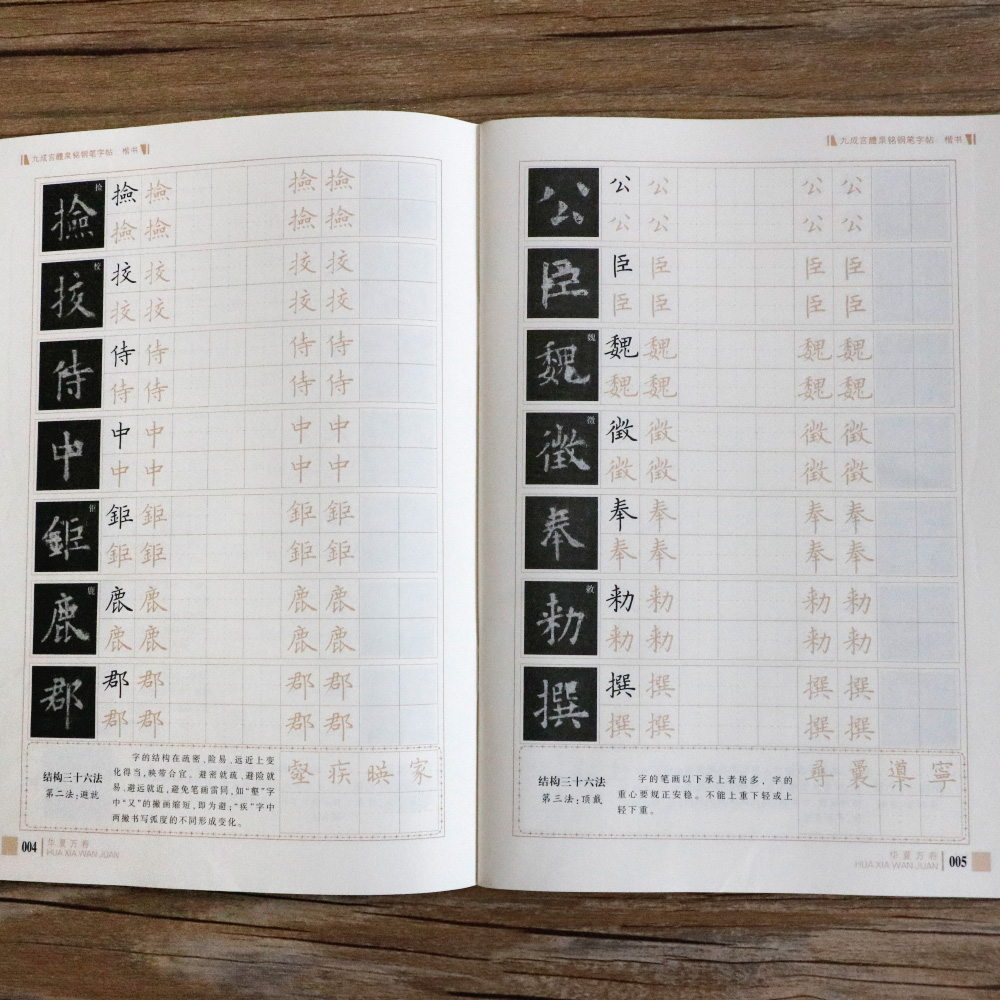 九成宫醴泉铭钢笔字帖 楷书
捡
撿 撿 撿 撿 撿
撿 撿 撿 撿
校
挍 挍 挍 挍 挍
挍 挍 挍 挍
侍 侍 侍 侍 侍
侍 侍 侍 侍
中 中 中 中 中
中 中 中 中
鉅 鉅 鉅 鉅 鉅
鉅 鉅 鉅 鉅
鹿
鹿 鹿 鹿 鹿 鹿
鹿 鹿 鹿 鹿
郡 郡 郡 郡 郡
郡 郡 郡 郡
结构三十六法
第二法:避就
字的结构在疏密、险易、远近上变
化得当,映带合宜。避密就疏、避险就
易、避远就近,避免笔画雷同,如“壑”字
中“又”的撇画缩短,即为避;“疾”字中
两撇书写弧度的不同形成变化。
壑 疾 暎 家
004 华夏万卷
HUA XIA WAN JUAN
九成宫醴泉铭钢笔字帖 楷书
公 公 公 公 公
公 公 公 公
臣 臣 臣 臣 臣
臣 臣 臣 臣
魏
魏 魏 魏 魏 魏
魏 魏 魏 魏
徵 徵 徵 徵 徵
徵 徵 徵 徵
奉 奉 奉 奉 奉
奉 奉 奉 奉
敕
勑 勑 勑 勑 勑
勑 勑 勑 勑
撰 撰 撰 撰 撰
撰 撰 撰 撰
结构三十六法
第三法:顶戴
字的笔画以下承上者居多,字的
重心要规正安稳。不能上重下轻或上
轻下重。
尋 曩 寧
华夏万卷 005
HUA XIA WAN JUAN